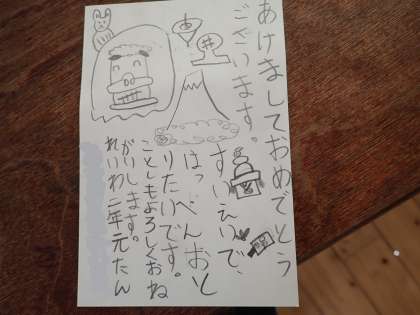 あけましておめでとう
ございます。
すいえいで、
はっぺんおと
りたいです。
ことしもよろしくおね
がいします。
れいわ二年元たん